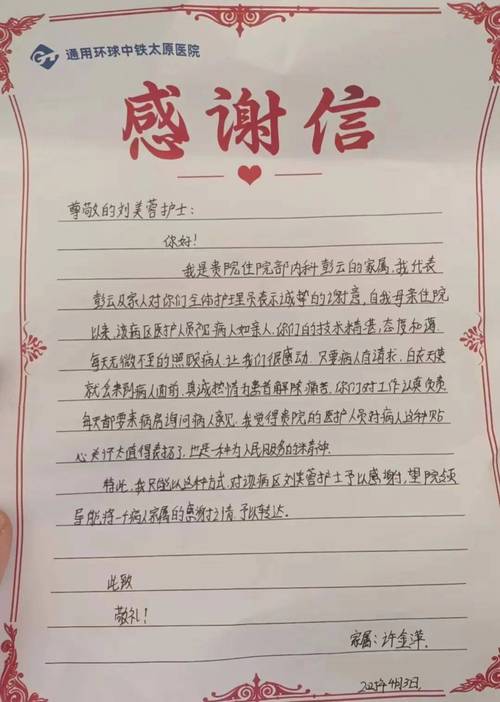 通用环球中铁太原医院
感谢信
尊敬的刘美蓉护士：
你好！
我是贵院住院部内科彭云的家属，我代表
彭云及家人对你们全体护理员表示诚挚的谢意，自我母亲住院
以来，该病区医护人员视病人如亲人，你们的技术精湛，态度和蔼
每天无微不至的照顾病人，让我们很感动，只要病人有请求，白衣天使
就会来到病人面前，真诚热情为患者解除痛苦，你们对工作认真负责
每天都要来病房询问病人意见，我觉得贵院的医护人员对病人这种贴
心关怀太值得表扬了，也是一种为人民服务的精神。
特此，我只能以这种方式，对该病区刘美蓉护士予以感谢，望院领
导能将一个病人家属的感谢之情予以转达。
此致
敬礼！
家属：许金萍
2025年4月3日